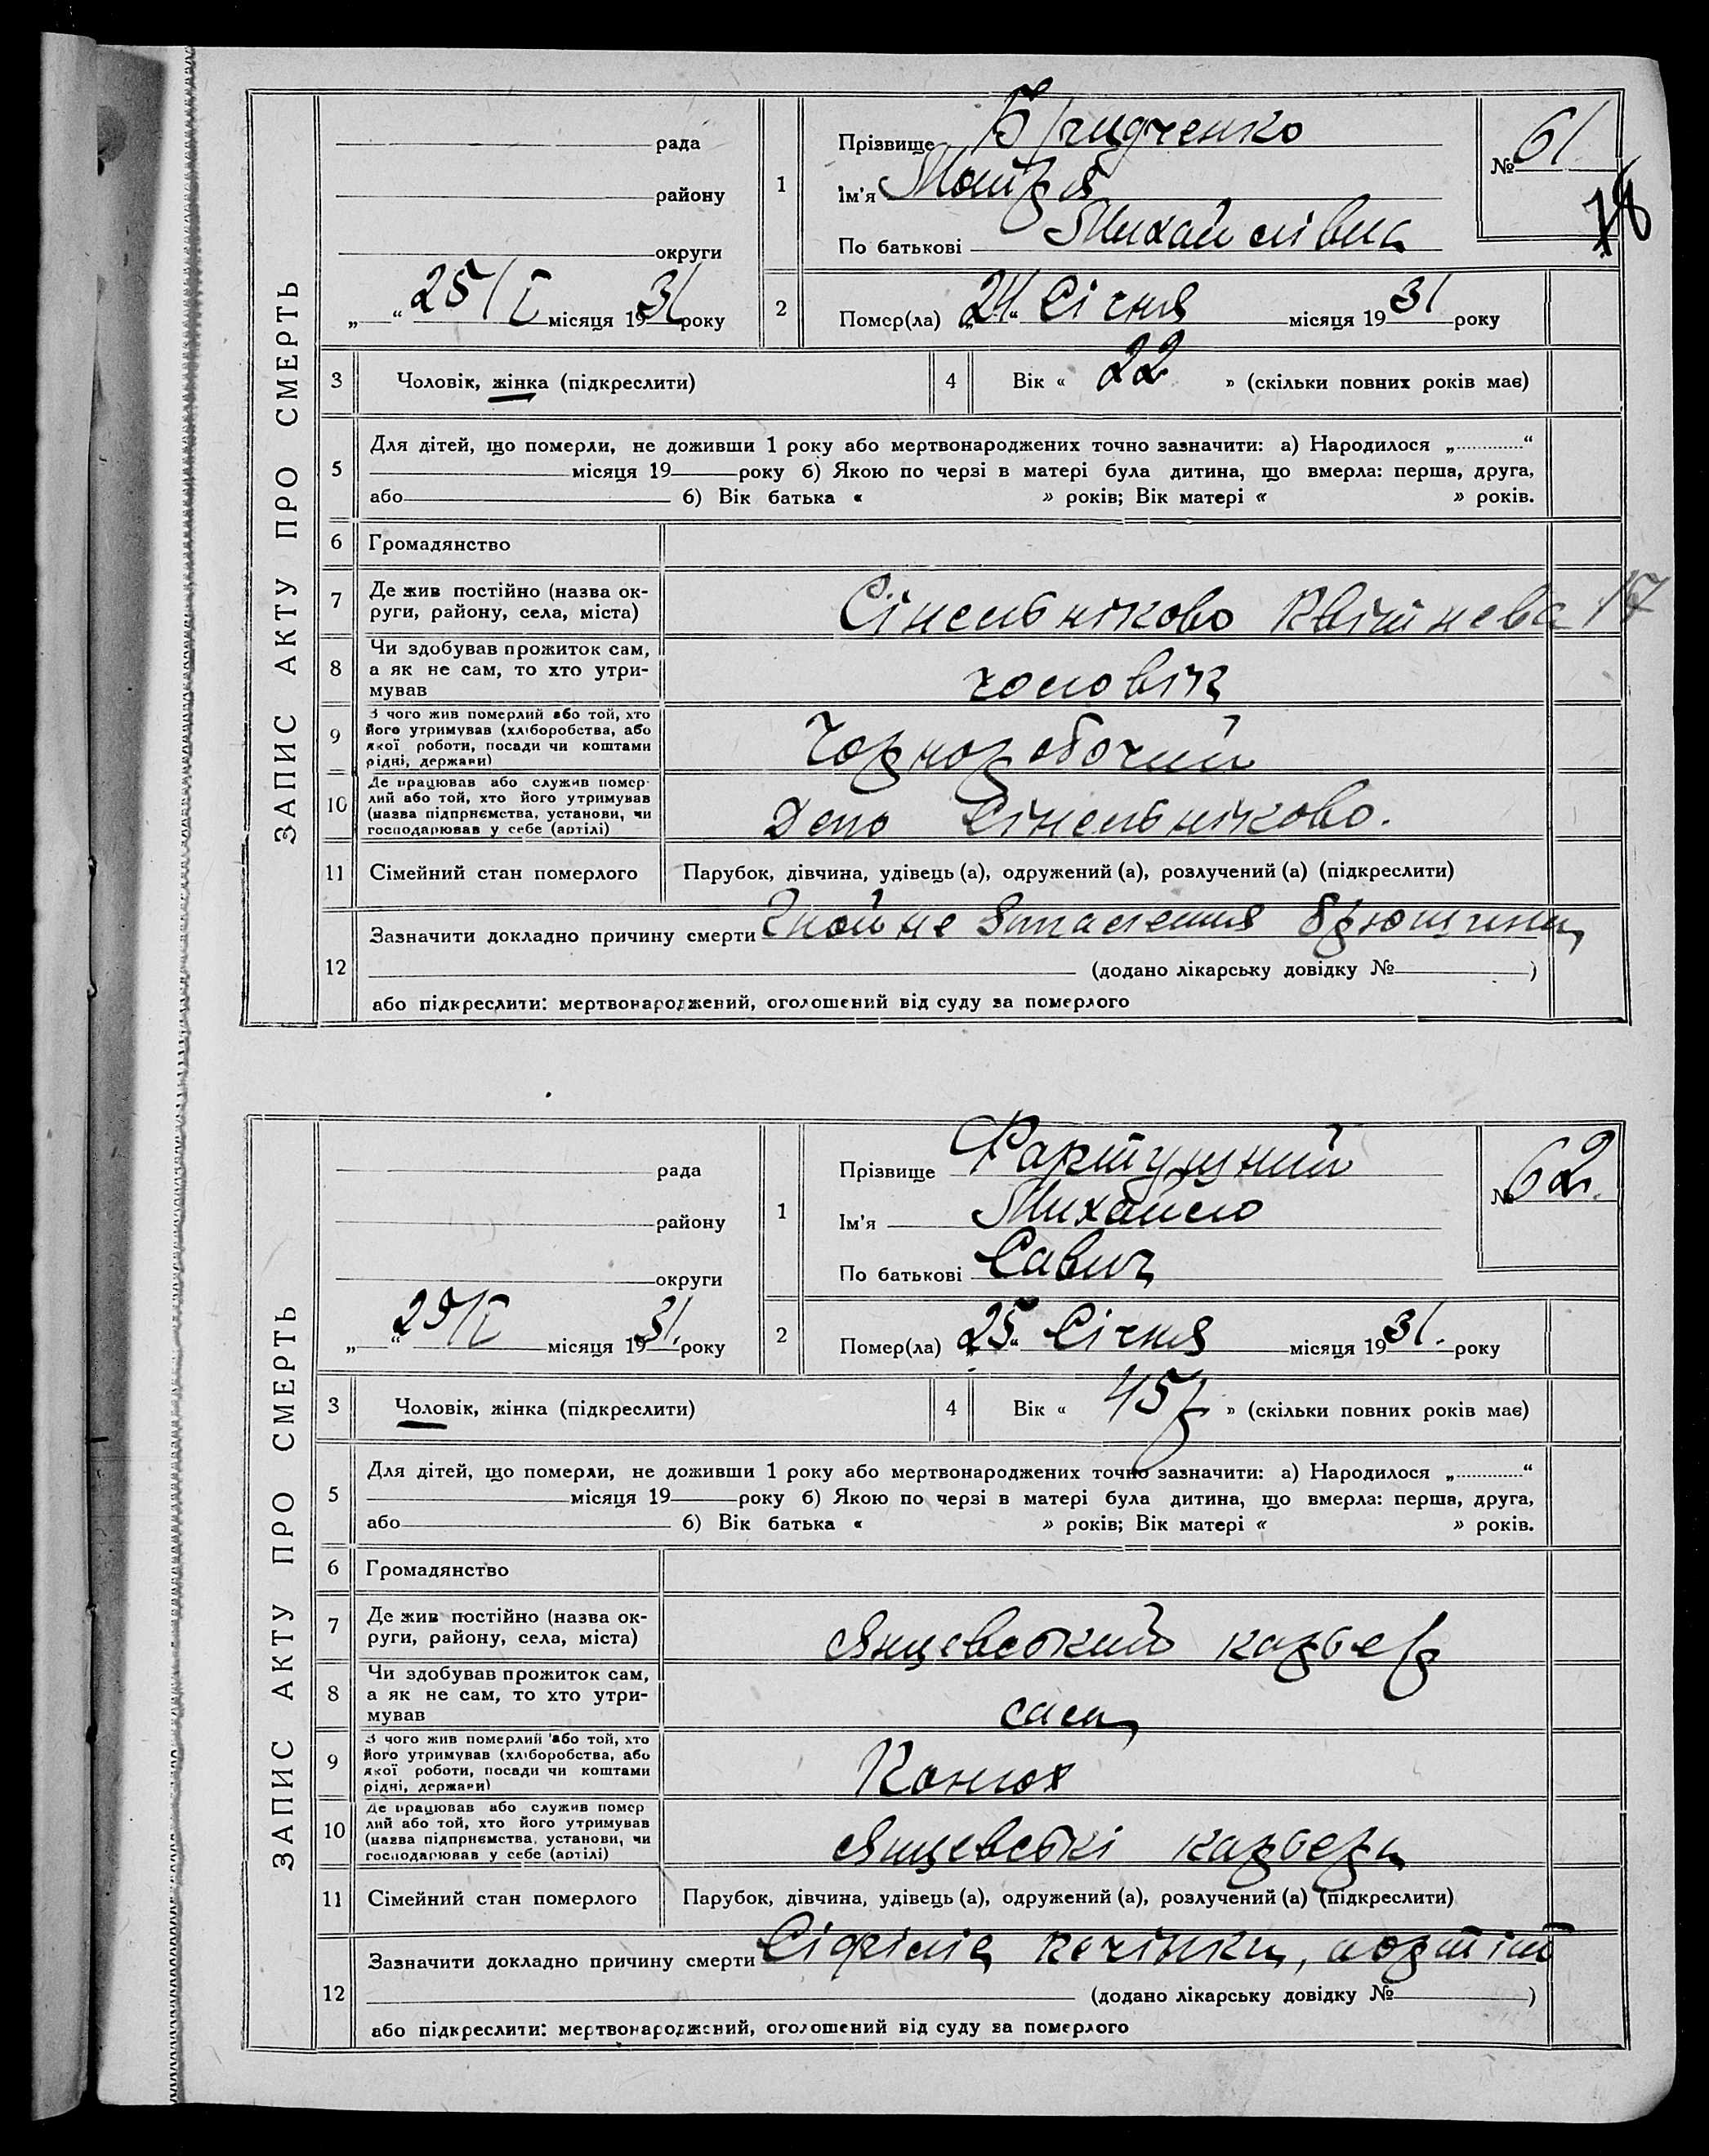 ЗАПИС АКТУ ПРО СМЕРТЬ
рада
району
округи
„ “ 25/I місяця 1931 року
1
Прізвище
Ім'я Мотря
По батькові Михайлівна
№ 61
18
2
Помер(ла) „24“ Січня місяця 1931 року
3 Чоловік, жінка (підкреслити)
4 Вік « 22 » (скільки повних років має)
5
Для дітей, що померли, не доживши 1 року або мертвонароджених точно зазначити: а) Народилося „ “
місяця 19 року б) Якою по черзі в матері була дитина, що вмерла: перша, друга,
або б) Вік батька « » років; Вік матері « » років.
6 Громадянство
7 Де жив постійно (назва ок-
руги, району, села, міста)
Сінельніково Квітнева 17
8 Чи здобував прожиток сам,
а як не сам, то хто утри-
мував
чоловік
9 З чого жив померлий або той, хто
його утримував (хліборобства, або
якої роботи, посади чи коштами
рідні, держави)
Чорноробочий
10 Де працював або служив помер-
лий або той, хто його утримував
(назва підприємства, установи, чи
господарював у себе (артілі)
Депо Сінельніково.
11 Сімейний стан померлого Парубок, дівчина, удівець (а), одружений (а), розлучений (а) (підкреслити)
12
Зазначити докладно причину смерти Гнойне запаления брюшини
(додано лікарську довідку № )
або підкреслити: мертвонароджений, оголошений від суду за померлого
ЗАПИС АКТУ ПРО СМЕРТЬ
рада
району
округи
„ “ 25/I місяця 1931. року
1
Прізвище Фартушний
Ім'я Михайло
По батькові Савич
№ 62.
2
Помер(ла) „25“ Січня місяця 1931. року
3 Чоловік, жінка (підкреслити)
4 Вік « 45р » (скільки повних років має)
5
Для дітей, що померли, не доживши 1 року або мертвонароджених точно зазначити: а) Народилося „ “
місяця 19 року б) Якою по черзі в матері була дитина, що вмерла: перша, друга,
або б) Вік батька « » років; Вік матері « » років.
6 Громадянство
7 Де жив постійно (назва ок-
руги, району, села, міста)
Янцевський карьер
8 Чи здобував прожиток сам,
а як не сам, то хто утри-
мував
сам
9 З чого жив померлий або той, хто
його утримував (хліборобства, або
якої роботи, посади чи коштами
рідні, держави)
Конюх
10 Де працював або служив помер
лий або той, хто його утримував
(назва підприємства, установи, чи
господарював у себе (артілі)
Янцевські карьери
11 Сімейний стан померлого Парубок, дівчина, удівець (а), одружений (а), розлучений (а) (підкреслити)
12
Зазначити докладно причину смерти Сіфіліс печінки, аортіт
(додано лікарську довідку № )
або підкреслити: мертвонароджений, оголошений від суду за померлого